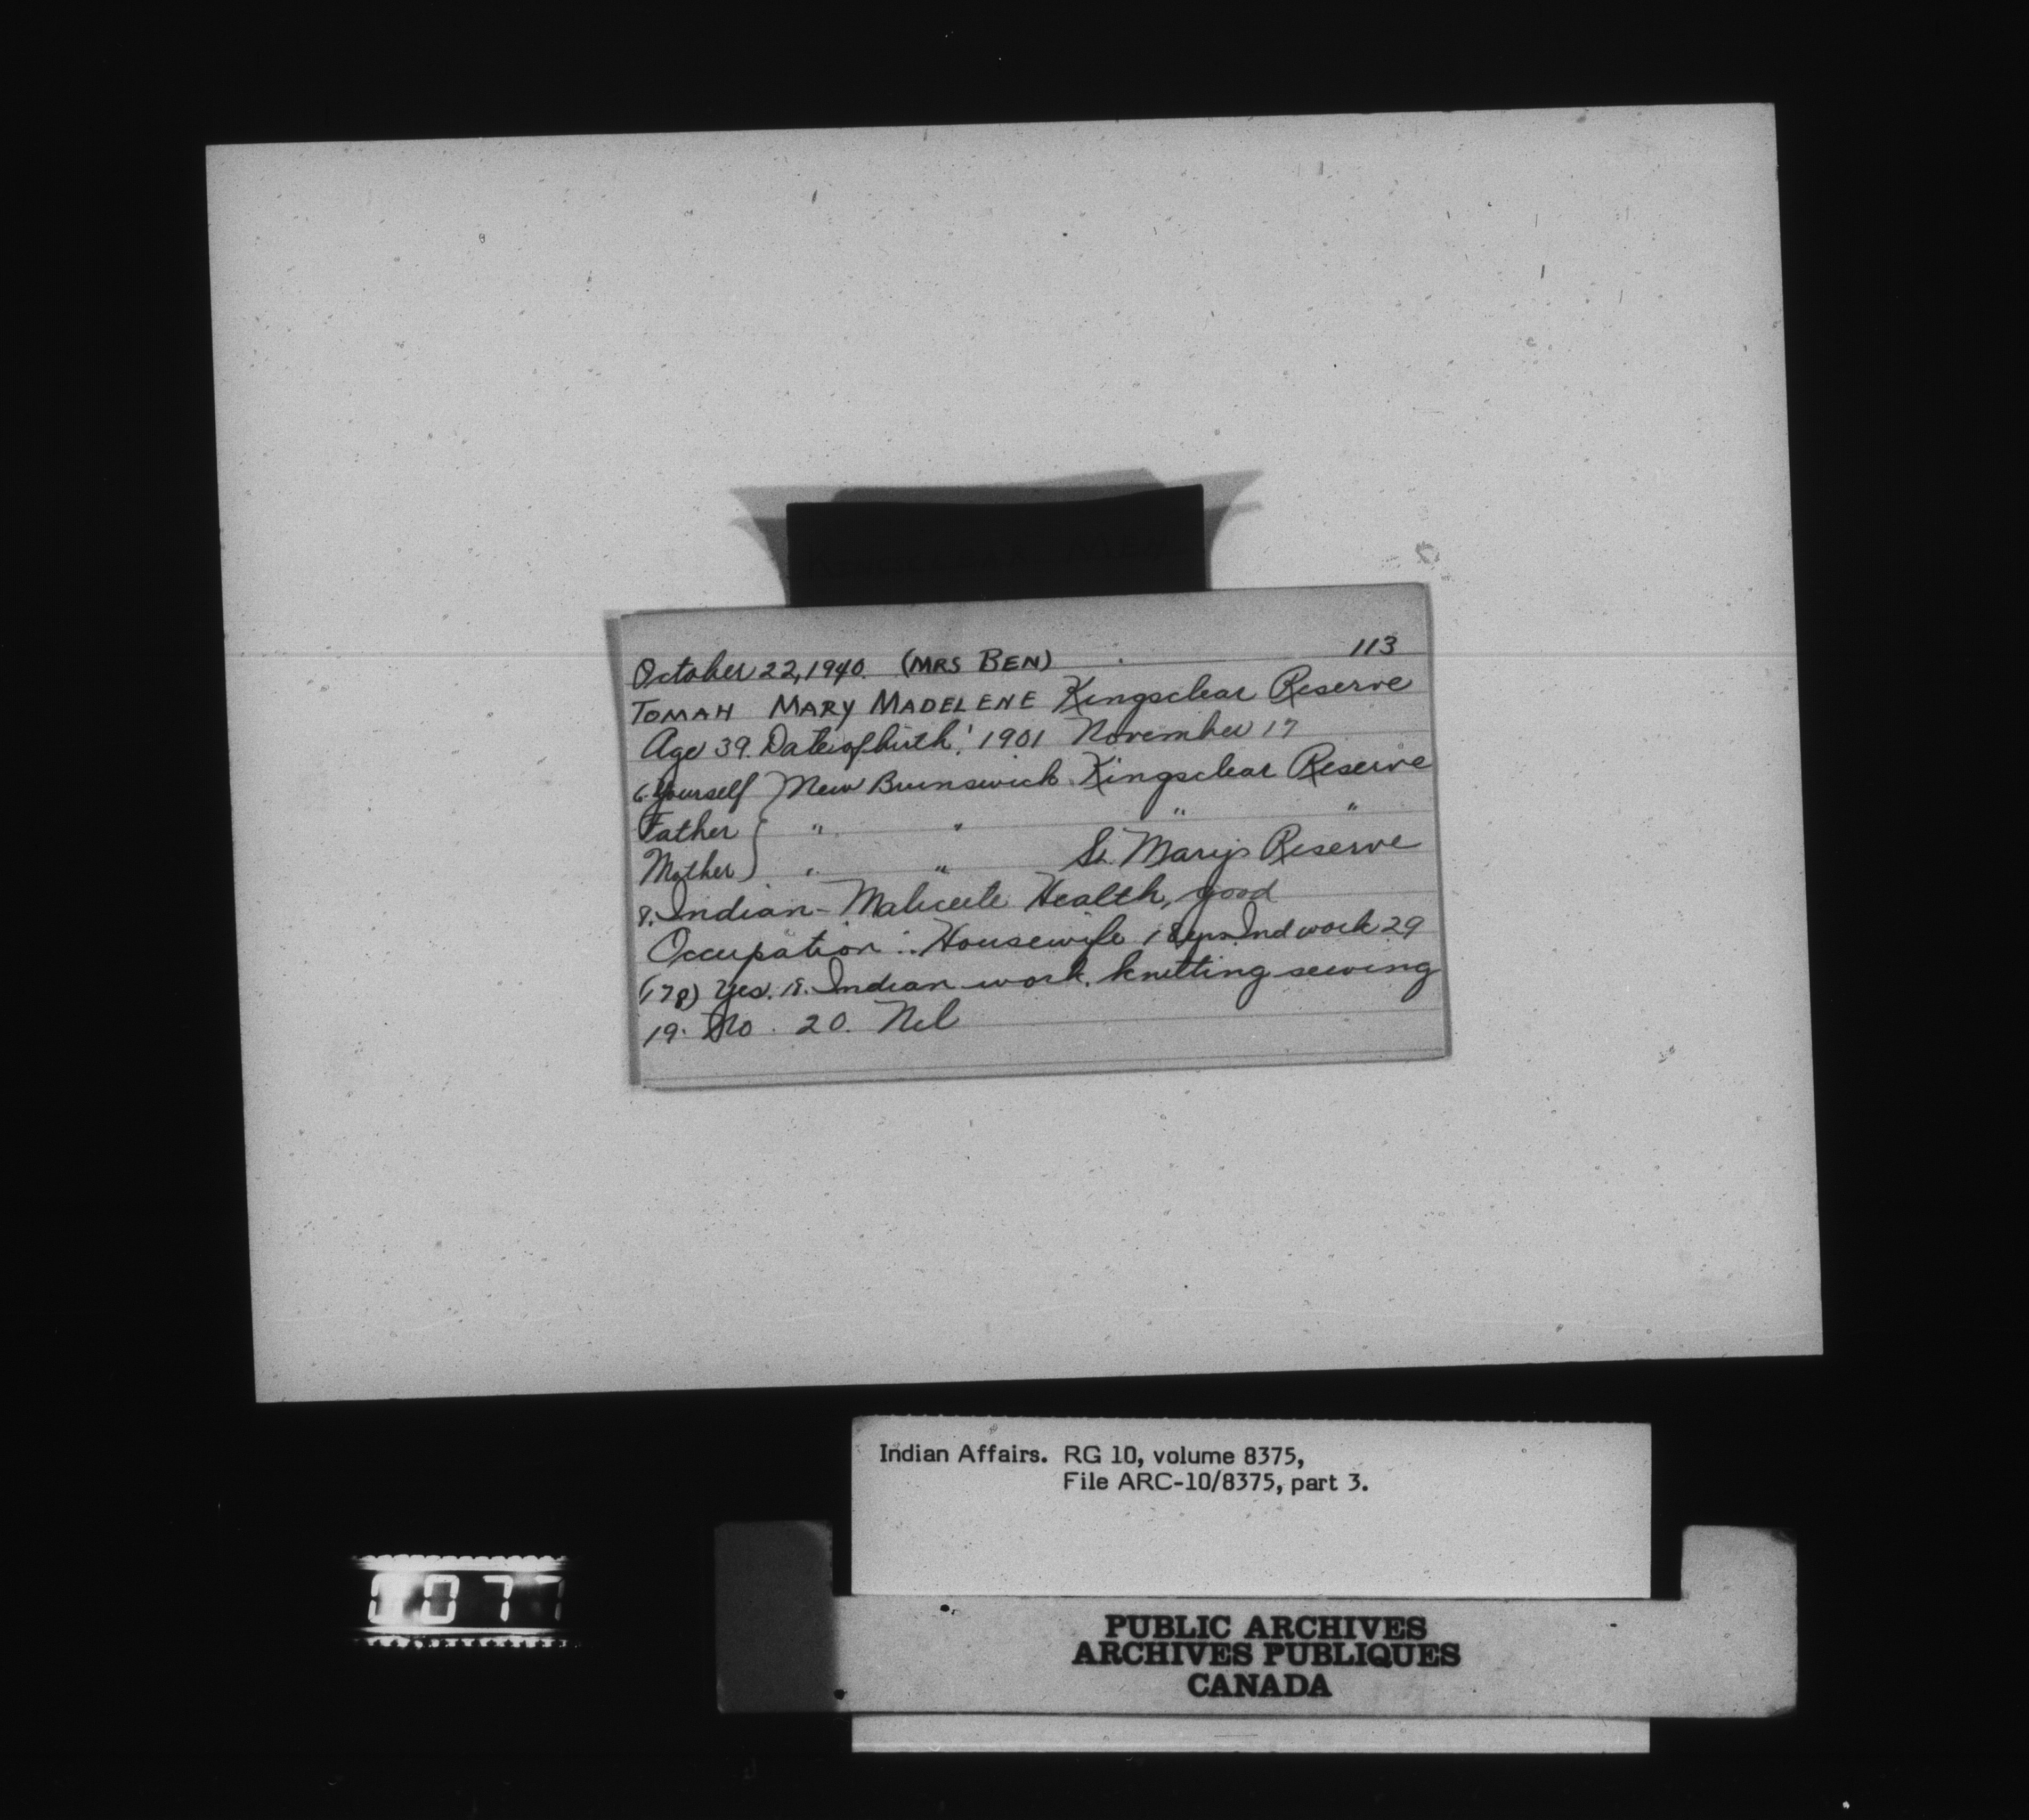 October 22, 1940. (MRS BEN) 113
TOMAH MARY MADELENE Kingsclear Reserve
Age 39. Date of birth: 1901 November 17
6. Yourself } New Brunswick. Kingsclear Reserve
Father } " " " "
Mother } " " St. Mary's Reserve
8. Indian - Malicete Health, good
Occupation: Housewife 18 yrs Ind work 29
(178) Yes. 18. Indian work. knitting sewing
19. No. 20. Nil
Indian Affairs. RG 10, volume 8375,
File ARC-10/8375, part 3.
0077
PUBLIC ARCHIVES
ARCHIVES PUBLIQUES
CANADA